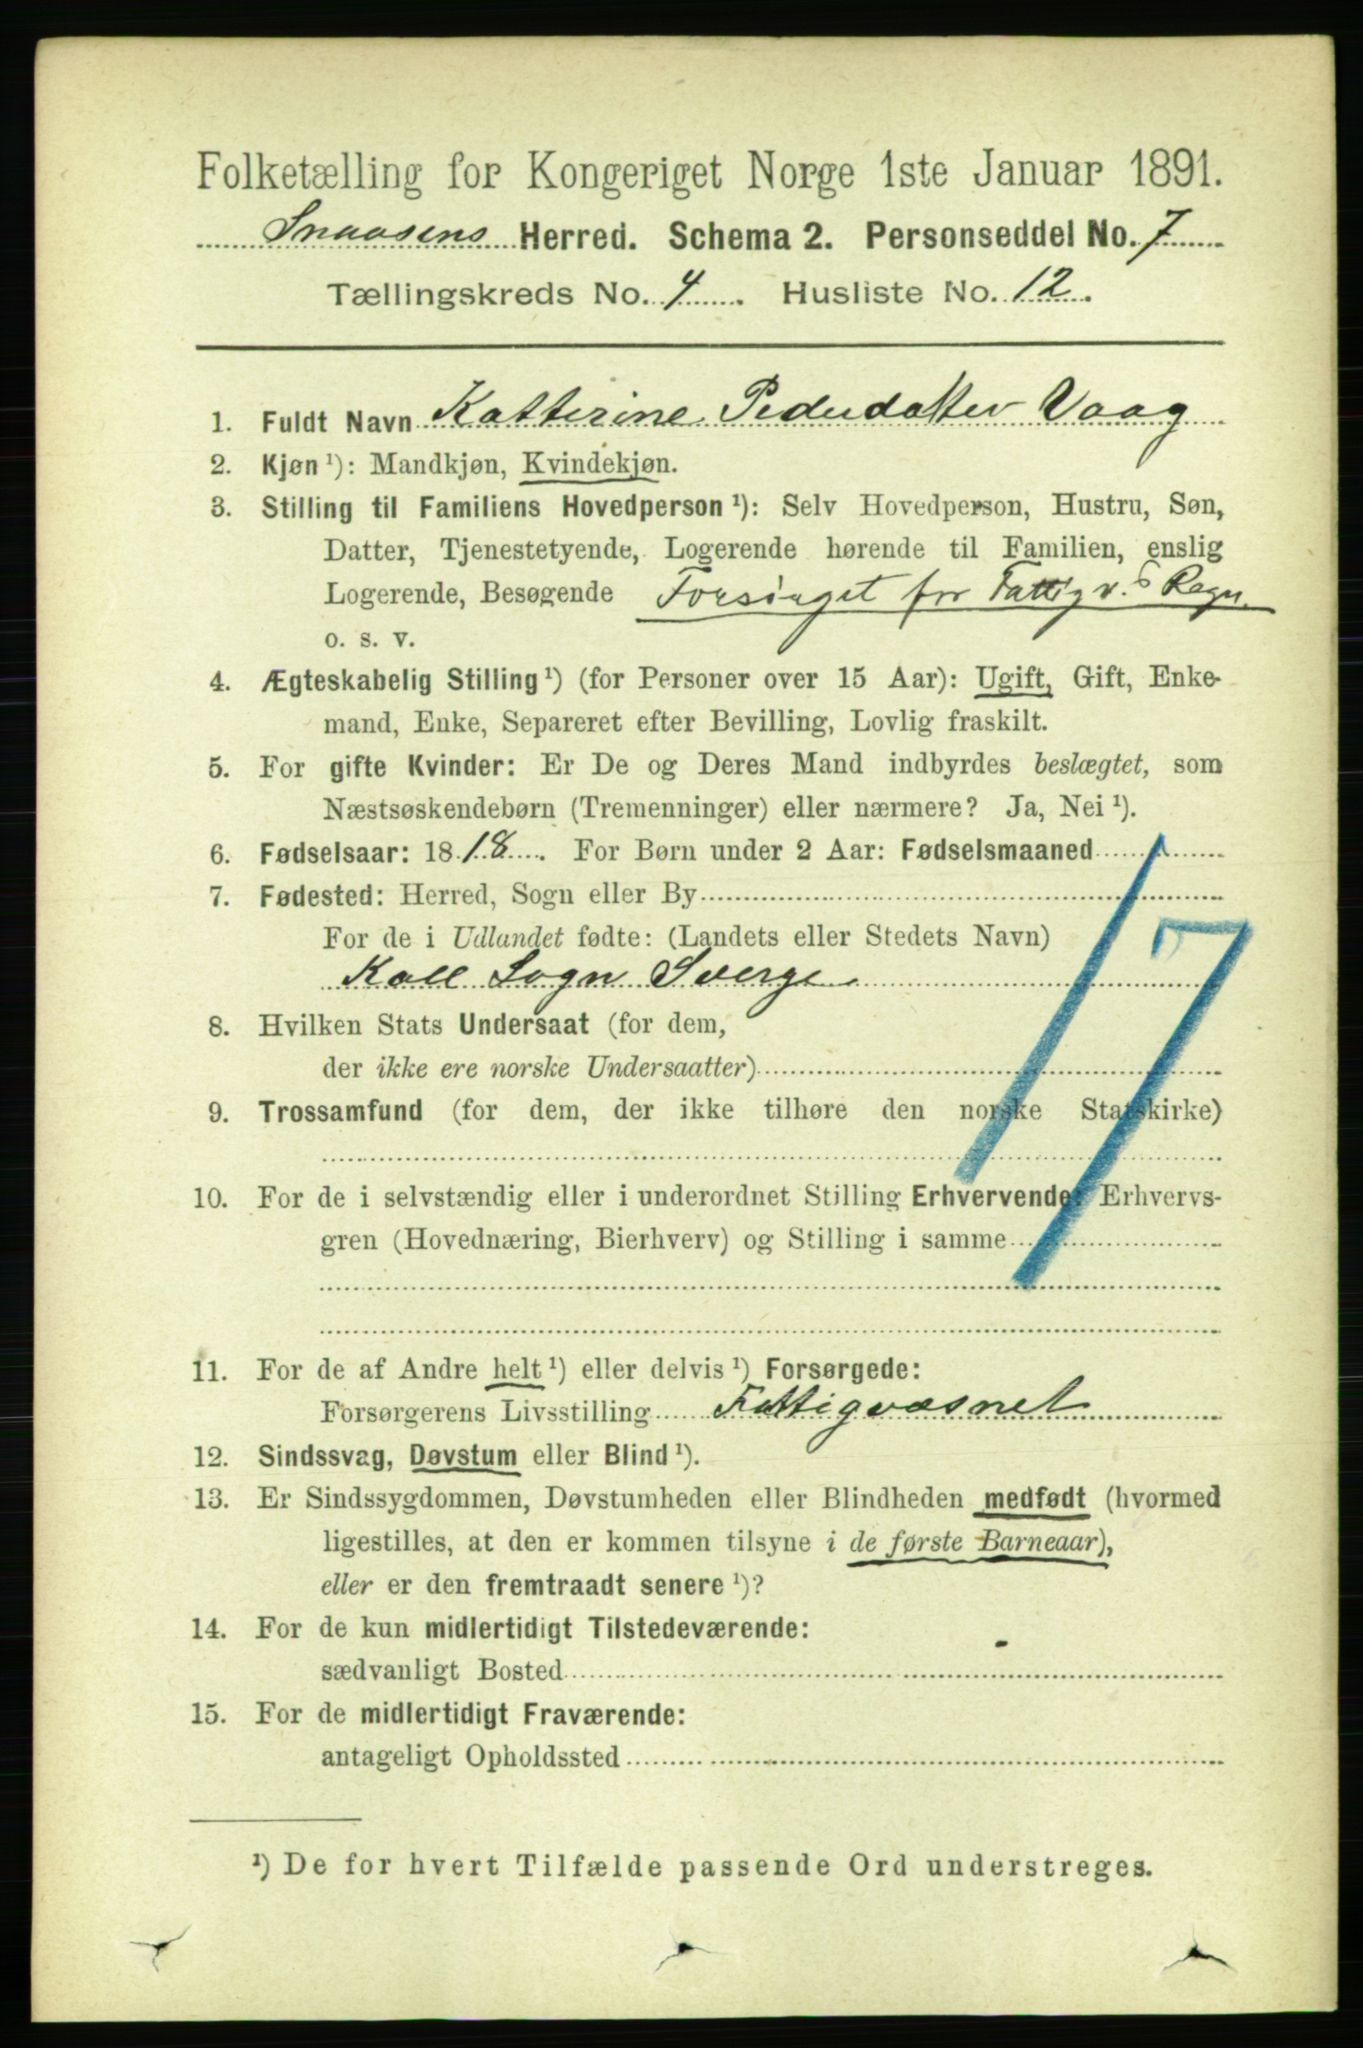 Folketælling for Kongeriget Norge 1ste Januar 1891.
Snaasens Herred. Schema 2. Personseddel No. 7
Tællingskreds No. 4. Husliste No. 12.
1. Fuldt Navn Katterine Pedersdatter Vaag
2. Kjøn ¹): Mandkjøn, Kvindekjøn.
3. Stilling til Familiens Hovedperson ¹): Selv Hovedperson, Hustru, Søn,
Datter, Tjenestetyende, Logerende hørende til Familien, enslig
Logerende, Besøgende Forsørget for Fattigv.s Regn.
o. s. v.
4. Ægteskabelig Stilling ¹) (for Personer over 15 Aar): Ugift, Gift, Enke-
mand, Enke, Separeret efter Bevilling, Lovlig fraskilt.
5. For gifte Kvinder: Er De og Deres Mand indbyrdes beslægtet, som
Næstsøskendebørn (Tremenninger) eller nærmere? Ja, Nei ¹).
6. Fødselsaar: 1818. For Børn under 2 Aar: Fødselsmaaned
7. Fødested: Herred, Sogn eller By
For de i Udlandet fødte: (Landets eller Stedets Navn)
Kall Sogn Sverge
8. Hvilken Stats Undersaat (for dem,
der ikke ere norske Undersaatter)
17
9. Trossamfund (for dem, der ikke tilhøre den norske Statskirke)
10. For de i selvstændig eller i underordnet Stilling Erhvervende: Erhvervs-
gren (Hovednæring, Bierhverv) og Stilling i samme
11. For de af Andre helt ¹) eller delvis ¹) Forsørgede:
Forsørgerens Livsstilling Fattigvæsnet
12. Sindssvag, Døvstum eller Blind ¹).
13. Er Sindssygdommen, Døvstumheden eller Blindheden medfødt (hvormed
ligestilles, at den er kommen tilsyne i de første Barneaar),
eller er den fremtraadt senere ¹)?
14. For de kun midlertidigt Tilstedeværende:
sædvanligt Bosted
15. For de midlertidigt Fraværende:
antageligt Opholdssted
¹) De for hvert Tilfælde passende Ord understreges.